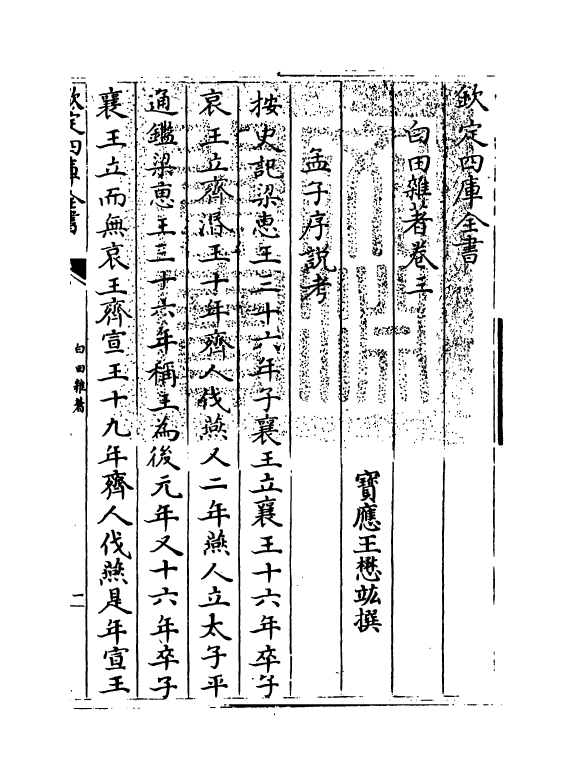 欽定四庫全書
白田雜著卷三
寶應王懋竑撰
孟子序說考
按史記梁惠王三十六年子襄王立襄王十六年卒子
哀王立齊湣王十年齊人伐燕又二年燕人立太子平
通鑑梁惠王三十六年稱王為後元年又十六年卒子
襄王立而無哀王齊宣王十九年齊人伐燕是年宣王
欽定四庫全書
白田雜著